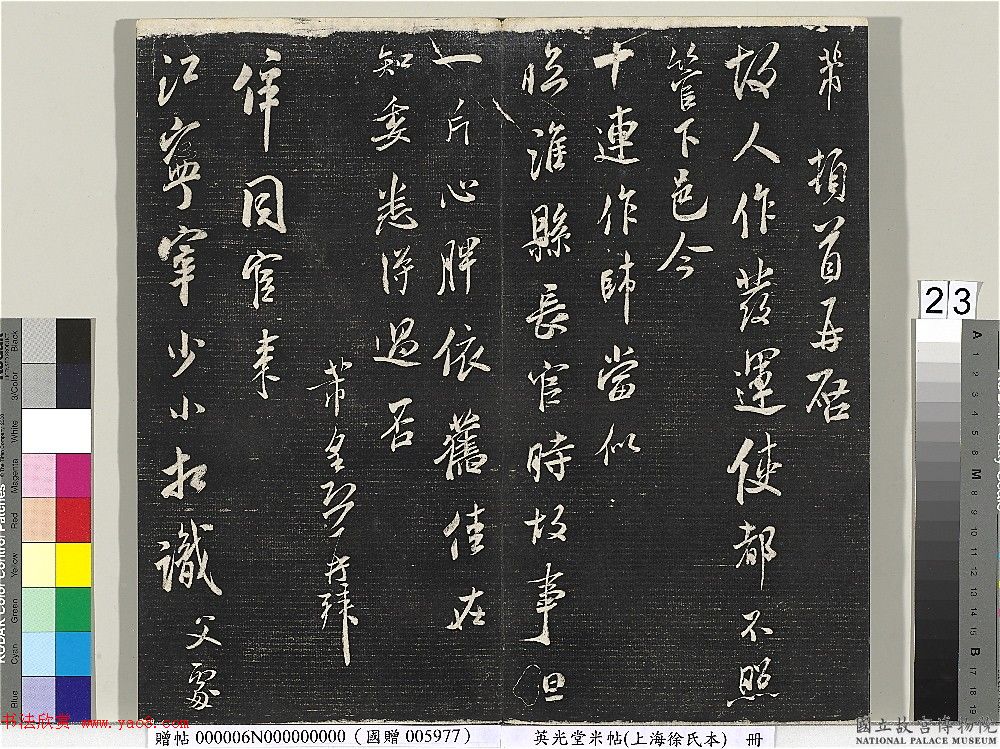 芾頓首再啓
故人作發運使都不照
管下邑今
十連作帥當似
臨淮縣長官時故事但
一片心胖依舊佳在
知委悉得過否
芾皇恐再拜
侔同官来
江寧宰少小相識父處
23
贈帖 000006N000000000 (國贈 005977)
英光堂米帖(上海徐氏本) 冊
國立故宮博物院
NATIONAL PALACE MUSEUM
书法欣赏 www.yac8.com
Black
3/Color
White
Magenta
Red
Yellow
Green
Cyan
Blue
A
1
2
3
4
5
6
M
8
9
10
11
12
13
14
15
B
17
18
19